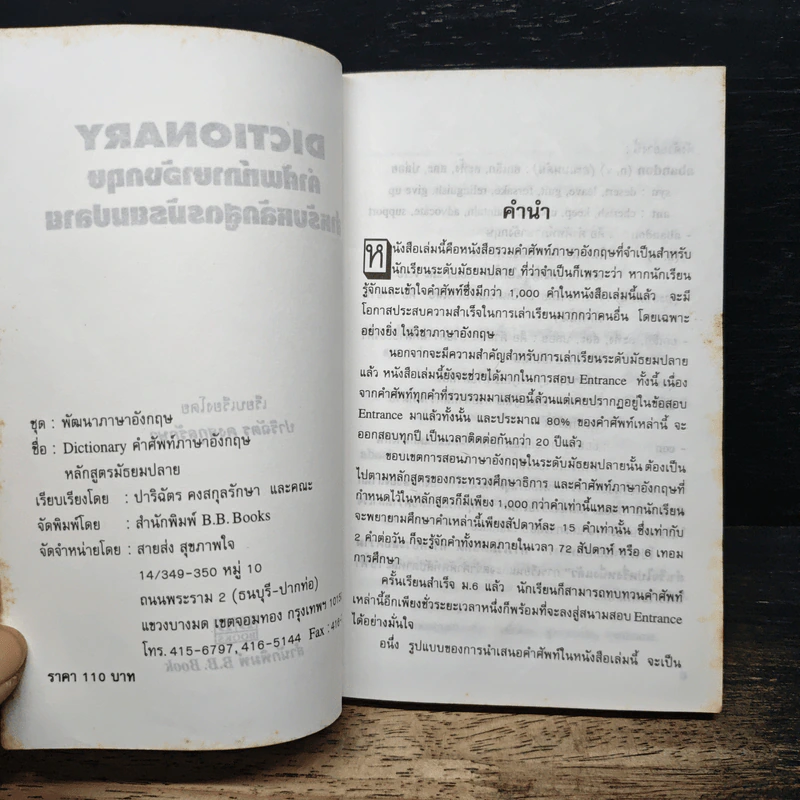 ชุด : พัฒนาภาษาอังกฤษ
ชื่อ : Dictionary คำศัพท์ภาษาอังกฤษ
หลักสูตรมัธยมปลาย
เรียบเรียงโดย : ปาริฉัตร คงสกุลรักษา และคณะ
จัดพิมพ์โดย : สำนักพิมพ์ B.B. Books
จัดจำหน่ายโดย : สายส่ง สุขภาพใจ
14/349-350 หมู่ 10
ถนนพระราม 2 (ธนบุรี-ปากท่อ)
แขวงบางมด เขตจอมทอง กรุงเทพฯ
โทร. 415-6797, 416-5144 Fax :
ราคา 110 บาท
คำนำ
หนังสือเล่มนี้คือหนังสือรวมคำศัพท์ภาษาอังกฤษที่จำเป็นสำหรับ
นักเรียนระดับมัธยมปลาย ที่ว่าจำเป็นก็เพราะว่า หากนักเรียน
รู้จักและเข้าใจคำศัพท์ซึ่งมีกว่า 1,000 คำในหนังสือเล่มนี้แล้ว จะมี
โอกาสประสบความสำเร็จในการเล่าเรียนมากกว่าคนอื่น โดยเฉพาะ
อย่างยิ่ง ในวิชาภาษาอังกฤษ
นอกจากจะมีความสำคัญสำหรับการเล่าเรียนระดับมัธยมปลาย
แล้ว หนังสือเล่มนี้ยังจะช่วยได้มากในการสอบ Entrance ทั้งนี้ เนื่อง
จากคำศัพท์ทุกคำที่รวบรวมมาเสนอนี้ล้วนแต่เคยปรากฏอยู่ในข้อสอบ
Entrance มาแล้วทั้งนั้น และประมาณ 80% ของคำศัพท์เหล่านี้ จะ
ออกสอบทุกปี เป็นเวลาติดต่อกันกว่า 20 ปีแล้ว
ขอบเขตการสอนภาษาอังกฤษในระดับมัธยมปลายนั้น ต้องเป็น
ไปตามหลักสูตรของกระทรวงศึกษาธิการ และคำศัพท์ภาษาอังกฤษที่
กำหนดไว้ในหลักสูตรก็มีเพียง 1,000 กว่าคำเท่านี้แหละ หากนักเรียน
จะพยายามศึกษาคำเหล่านี้เพียงสัปดาห์ละ 15 คำเท่านั้น ซึ่งเท่ากับ
2 คำต่อวัน ก็จะรู้จักคำทั้งหมดภายในเวลา 72 สัปดาห์ หรือ 6 เทอม
การศึกษา
ครั้นเรียนสำเร็จ ม.6 แล้ว นักเรียนก็สามารถทบทวนคำศัพท์
เหล่านี้อีกเพียงชั่วระยะเวลาหนึ่งก็พร้อมที่จะลงสู่สนามสอบ Entrance
ได้อย่างมั่นใจ
อนึ่ง รูปแบบของการนำเสนอคำศัพท์ในหนังสือเล่มนี้ จะเป็น